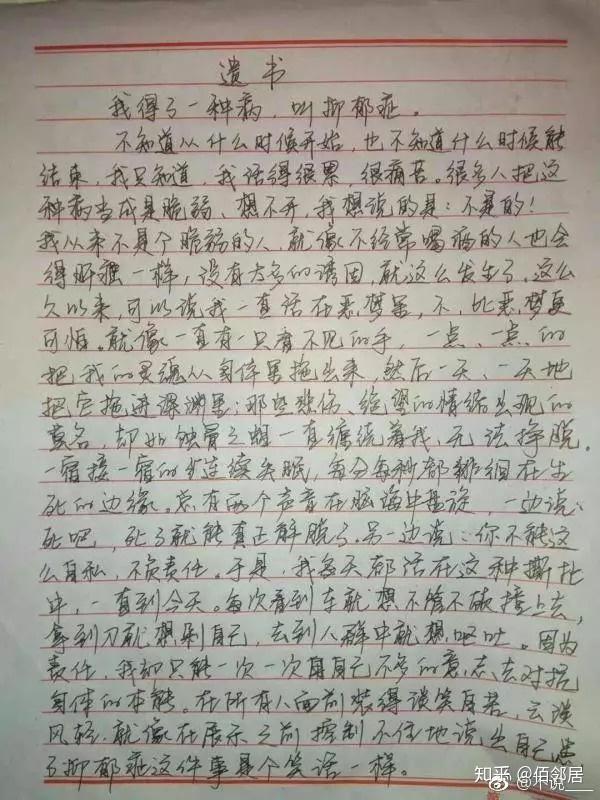 遗书
我得了一种病，叫抑郁症。
不知道从什么时候开始，也不知道什么时候能
结束，我只知道，我活得很累，很痛苦。很多人把这
种病当成是脆弱、想不开，我想说的是：不是的！
我从来不是个脆弱的人，就像不经常喝酒的人也会
得肝癌一样，没有太多的诱因，就这么发生了，这么
久以来，可以说我一直活在恶梦里，不，比恶梦更
可怕。就像一直有一只看不见的手，一点、一点的
把我的灵魂从身体里拖出来，然后一天、一天地
把它拖进深渊里；那些悲伤、绝望的情绪出现的
莫名，却如蚀骨之蛆一直缠绕着我，无法挣脱。
一宿接一宿的连续失眠，每分每秒都徘徊在生
死的边缘。总有两个声音在脑海中盘旋，一边说：
死吧，死了就能真正解脱了。另一边说：你不能这
么自私，不负责任。于是，我每天都活在这种撕扯
中，一直到今天。每次看到车就想不管不顾撞上去，
拿到刀就想剁自己，去到人群中就想呕吐。因为
责任，我却只能一次一次用自己不多的意志去对抗
身体的本能。在所有人面前装得谈笑自若，云淡
风轻，就像在展示之前控制不住地说出自己患
了抑郁症这件事是个笑话一样。
知乎 @佰邻居
@不说